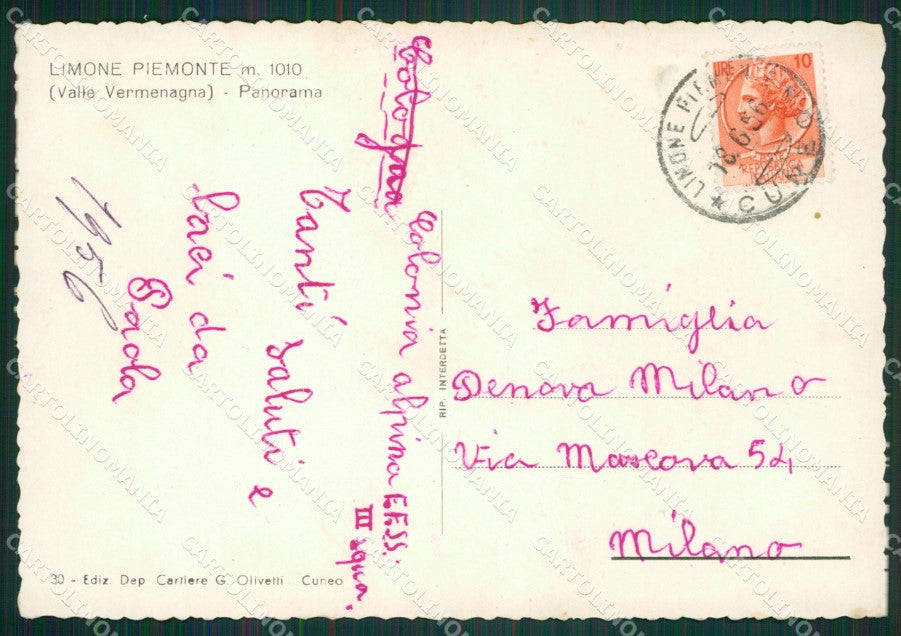 LIMONE PIEMONTE m. 1010
(Valle Vermenagna) - Panorama
Colonia alpina FF.SS.
III squa.
Tanti saluti e
baci da
Paola
1956
RIP. INTERDETTA
30 - Ediz. Dep. Cartiere G. Olivetti Cuneo
LIRE 10
LIMONE PIEMONTE
18 6 56
CUNEO
Famiglia
Denova Milano
Via Mascova 54
Milano
CARTOLINOMANIA